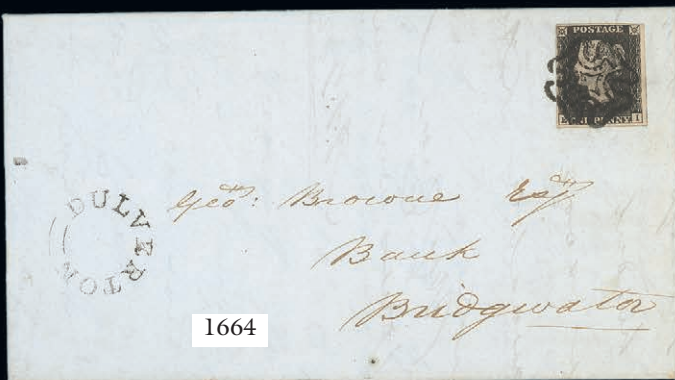 POSTAGE
PENNY I
DULVERTON
Geo: Browne Esq
Bank
Bridgwater
1664